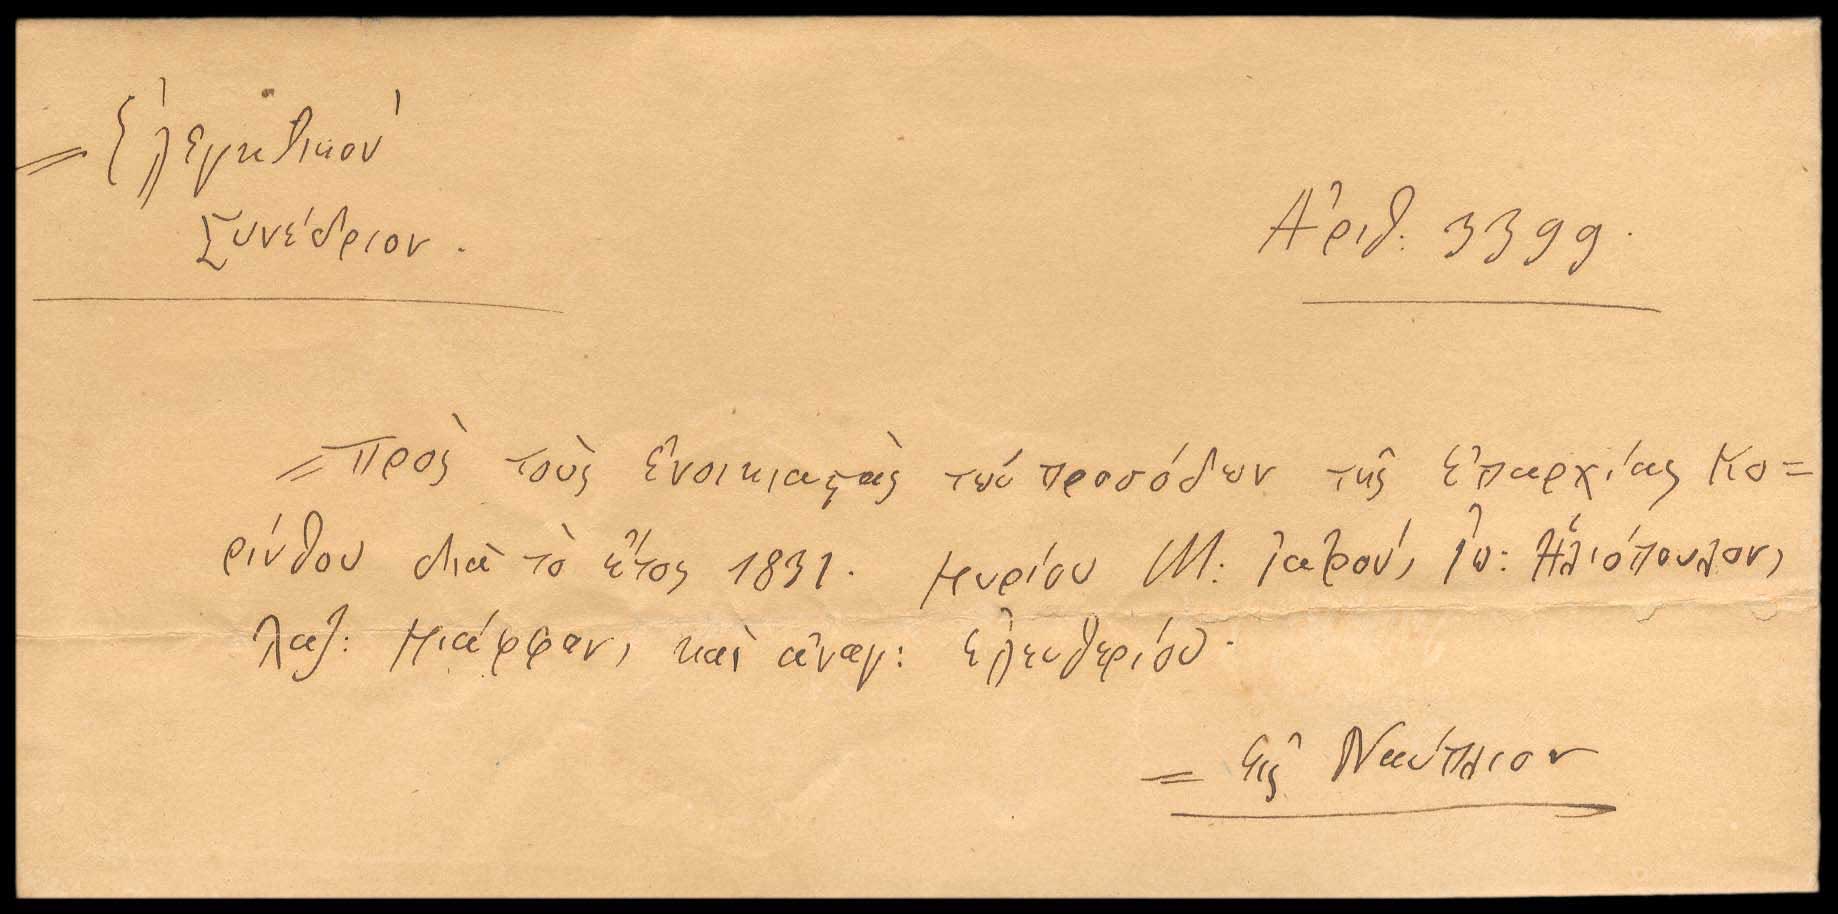 = Ἐλεγκτικὸν
Συνέδριον.
Ἀριθ: 3399.
= Πρὸς τοὺς ἐνοικιαςὰς τῶν προσόδων τῆς ἐπαρχίας Κο=
ρίνθου διὰ τὸ ἔτος 1831. Κυρίου Μ: Ἰατροῦ, Ἰω: Ἠλιόπουλον,
Λαζ: Κιάφφαν, καὶ ἀναγ: ἐλευθερίου.
= εἰς Ναύπλιον